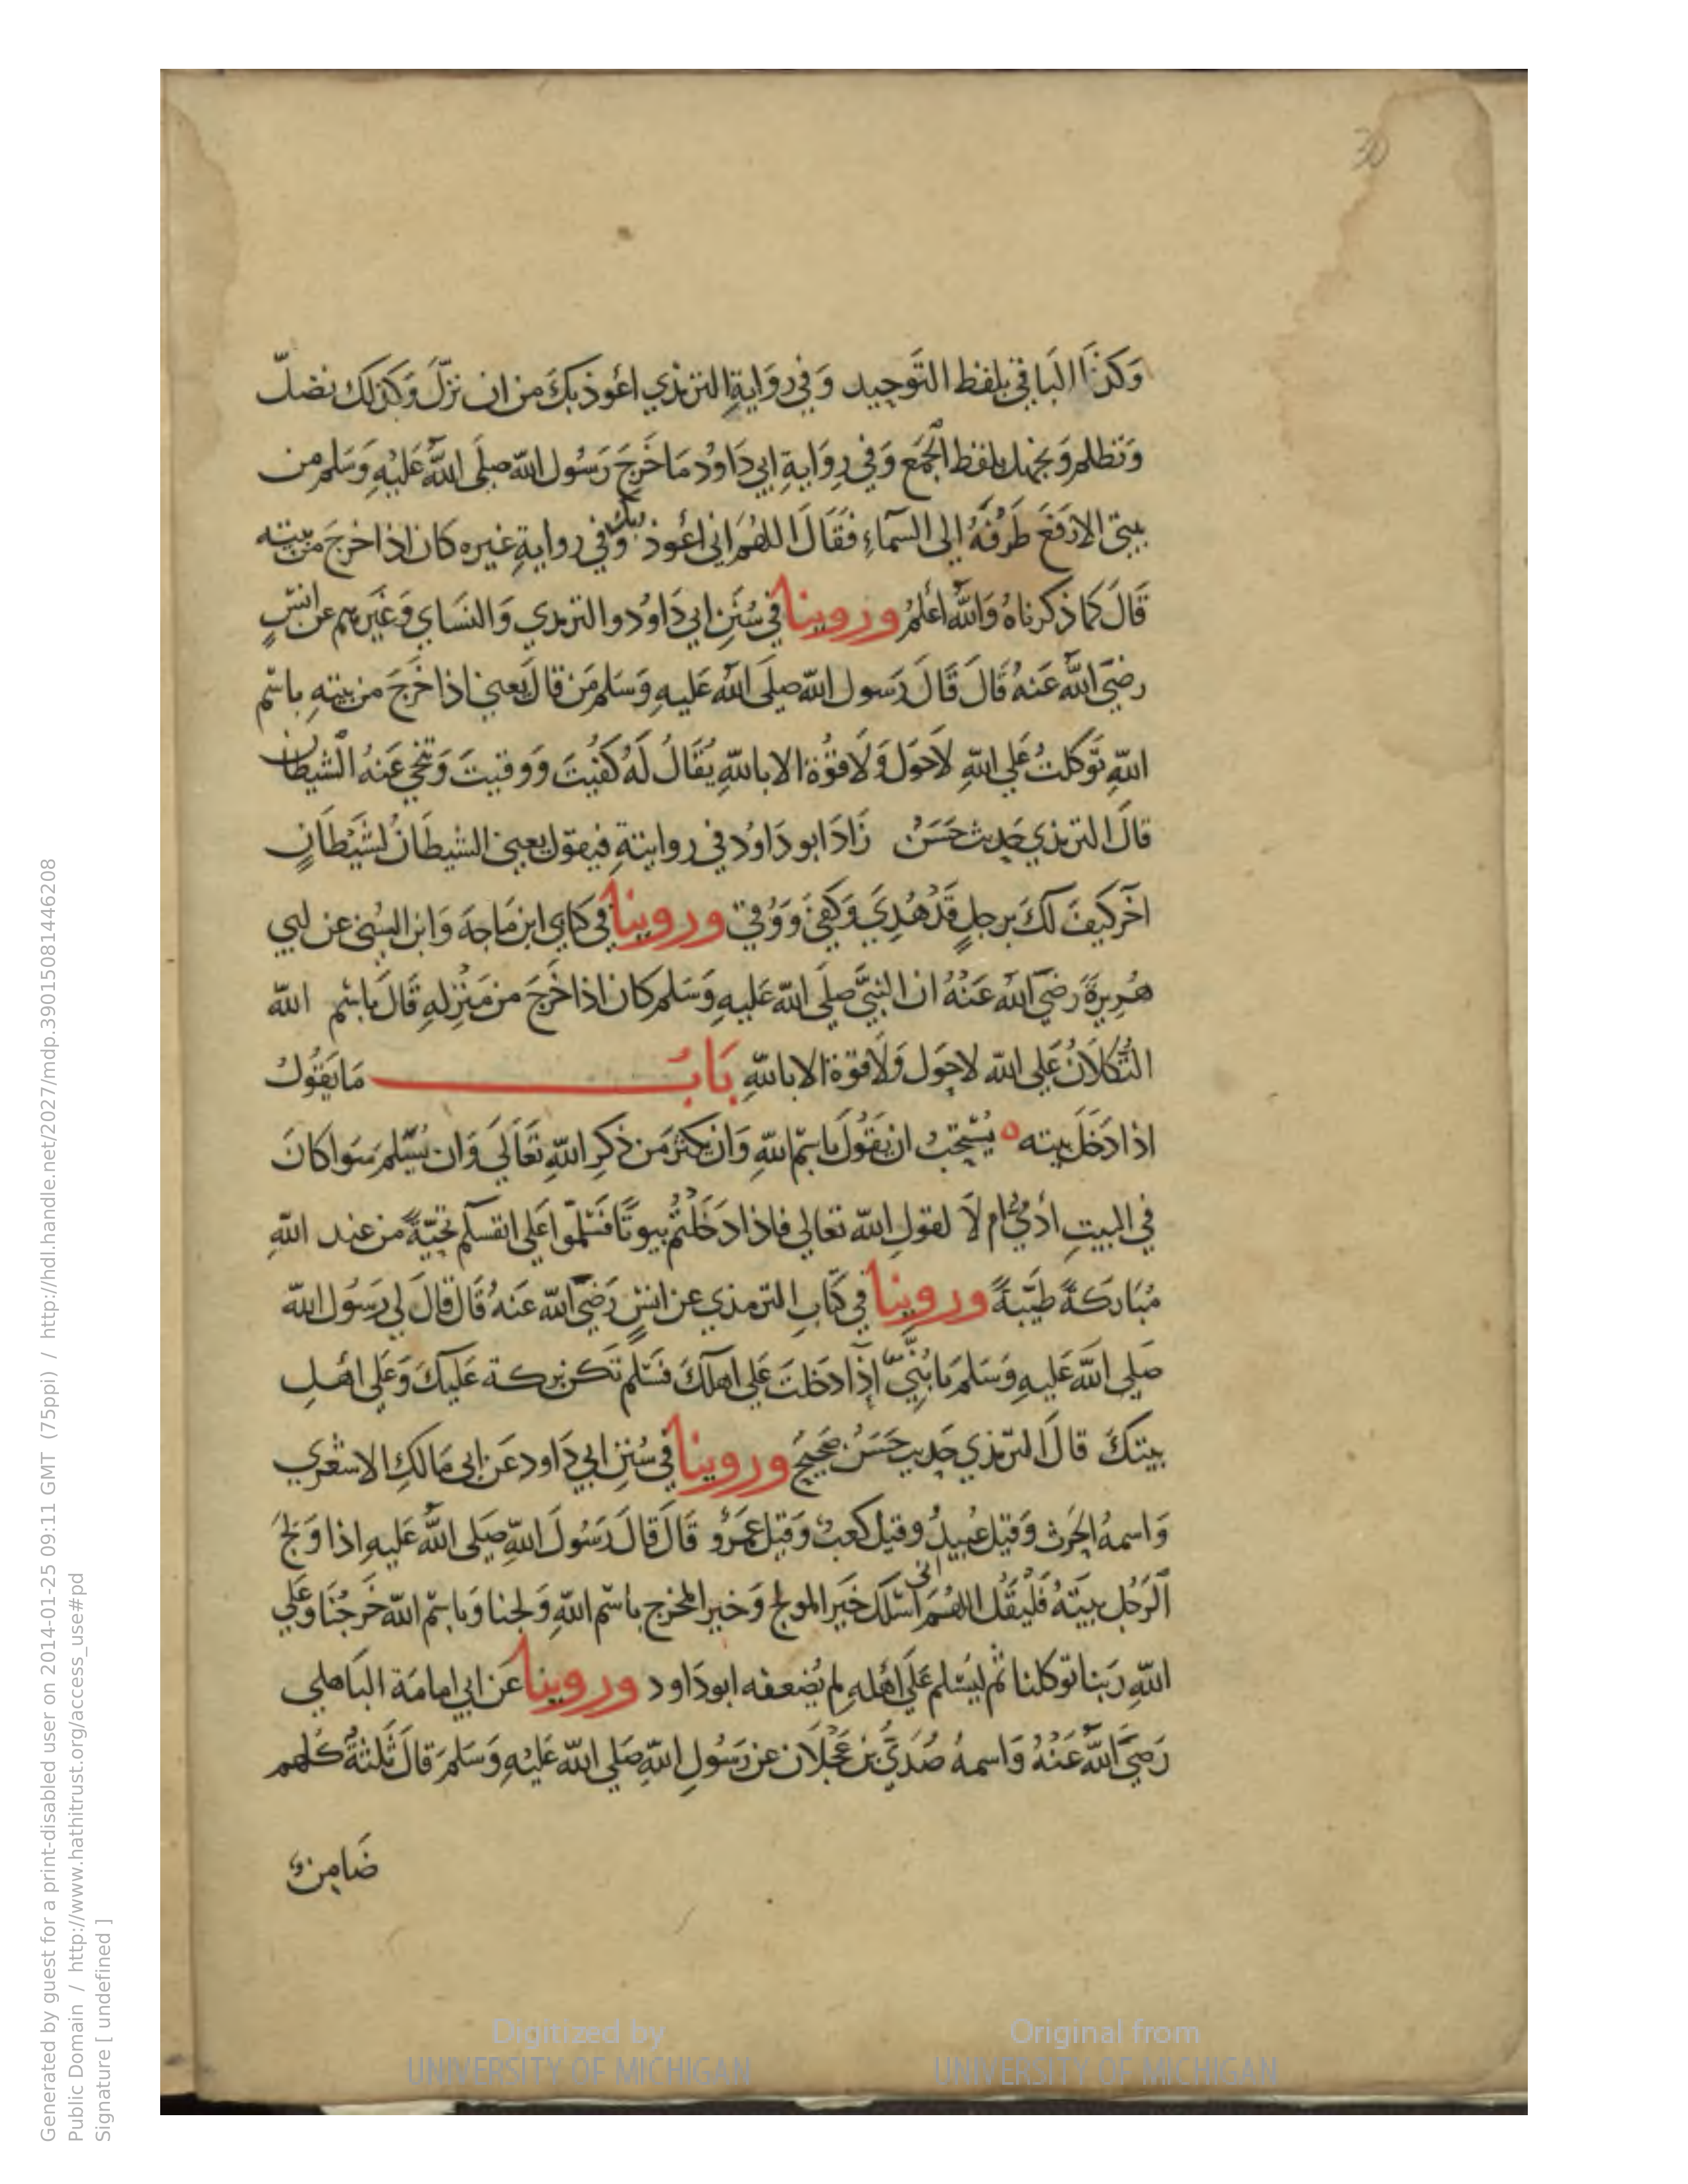 30
وَكذَا البَاقي بلفظ التَّوحِيد وَفي روَايةِ الترمذي اعُوذ بكَ من ان نزلَّ وَكذلك نضلّ
وَنظلم وَنجهل بلفظ الجَمع وَفي رِوَايةِ ابي دَاوُد مَا خَرجَ رَسُول الله صلى اللهُ عَليْهِ وَسَلم من
بيتي الا رَفعَ طَرْفَهُ إلى السَّماءِ فقَالَ اللهُمَّ اني اعُوذ بك وَفي روايةِ غيره كان اذا خرجَ من بيته
قَالَ كما ذكرناهُ وَاللهُ اعْلمُ وروينا في سُنَنِ ابي دَاوُد والترمذي وَالنسَاي وَغَيرهم عن انسٍ
رضيَ اللهُ عَنهُ قَالَ قَالَ رَسول الله صلى الله عَليهِ وَسَلم مَن قالَ يَعني اذا خَرَجَ من بيتهِ باسْم
اللهِ تَوكلتُ عَلى اللهِ لَا حَوَل وَلَا قوُّة الا باللهِ يُقَالُ لَهُ كفُيتَ وَوقيتَ وَتنحي عَنهُ الشيطان
قالَ الترمذي حَديث حَسَنٌ زَادَ ابو دَاوُد في روايتةِ فيقول يعني الشيطَانُ لشَيْطَانٍ
اخَر كيفَ لكَ برجلٍ قَدْ هُدِيَ وَكفِيَ وَوُقي وروينا في كتابي ابن مَاجهَ وَابن السُني عن ابي
هُريرةَ رَضيَ اللهُ عَنْهُ ان النبيَّ صلَى الله عَليهِ وَسَلم كان اذا خَرجَ من مَنزلهِ قَالَ باسْم الله
التُّكلَانُ عَلى الله لا حَوَل وَلَا قوة الا باللهِ بَابُ مَا يَقُولُ
اذا دَخَلَ بيته ه يُسْتحبُ ان يَقُولَ باسْم اللهِ وَان يكثرَ مَن ذكرِ اللهِ تَعَالَي وَان يُسَّلمَ سَوا كانَ
في البيتِ ادَميٌ ام لَا لقولِ الله تعَالى فاذا دَخَلتُم بيوتًا فسَلّموا عَلى انفسكم تحيَّةً من عند اللهِ
مُبَارَكةً طيَّبةً وروينا في كتابِ الترمذي عن انسٍ رَضيَ الله عَنهُ قَالَ قالَ لي رَسُول الله
صَلى اللهَ عَليهِ وَسَلم يَا بُنَّيَّ إذَا دَخلتَ عَلى اهلكَ فسَلّم تكن بركة عَليكَ وَعَلى اهْل
بيتكَ قالَ الترمذي حَديث حَسَنٌ صَحيحٌ وروينا في سُننِ ابي دَاود عَن ابي مَالكِ الاشعري
وَاسمهُ الحَرث وَقيل عُبيدٌ وقيل كعبٌ وَقيل عَمَروُ قَالَ قَالَ رَسُولَ اللهِ صَلى اللهُ عَليهِ اذا وَلجَ
الرَجُل بيتَهُ فَليقُل اللهُمَّ انى اسئلكَ خَيَر المولج وَخير المخرج باسْم اللهِ وَلجنا وَباسْم الله خَرجُنَا وَعَلي
اللهِ رَبنا توكلنا ثم ليُسَلم عَلى اهْلهِ لم يُضعفه ابودَاود وروينا عَن ابي امَامَة البَاهلي
رَضيَ اللهُ عَنْهُ وَاسمهُ صُدَيُّ بن عَجْلَان عن رَسُولِ اللهِ صَلى الله عَليْهِ وَسَلمَ قَالَ ثَلثةٌ كُلهم
ضَامِنٌ
Digitized by
UNIVERSITY OF MICHIGAN
Original from
UNIVERSITY OF MICHIGAN
Generated by guest for a print-disabled user on 2014-01-25 09:11 GMT (75ppi) / http://hdl.handle.net/2027/mdp.39015081446208
Public Domain / http://www.hathitrust.org/access_use#pd
Signature [ undefined ]